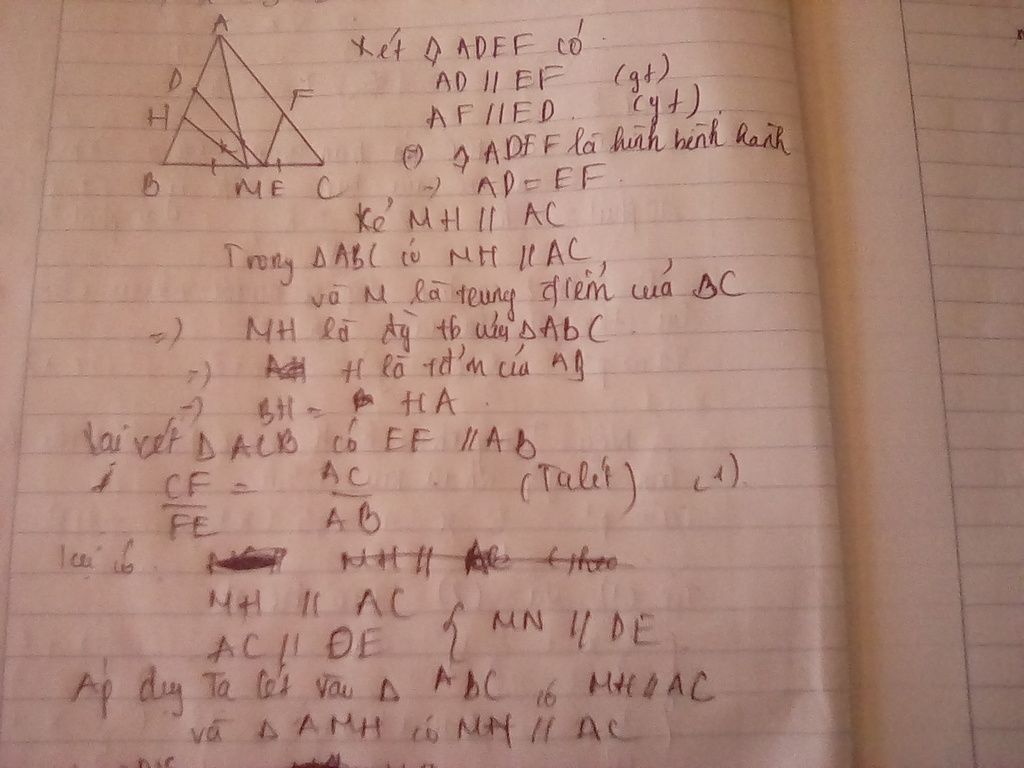 A
D
F
H
B
M E
C
Xét ◊ ADEF có
AD // EF (gt)
AF // ED. (gt)
=) ◊ ADEF là hình bình hành
=) AD = EF.
Kẻ MH // AC
Trong ΔABC có MH // AC,
và M là trung điểm của BC
=) MH là đg tb của ΔABC
=) H là tđ'm của AB
=) BH = HA.
Lại xét Δ ACB có EF // AB
CF/FE = AC/AB (Talét) (1).
lại có
MH // AC
AC // DE } MN // DE
Áp dụg Ta lét vào Δ ABC có MH // AC
và Δ AMH có MH // AC